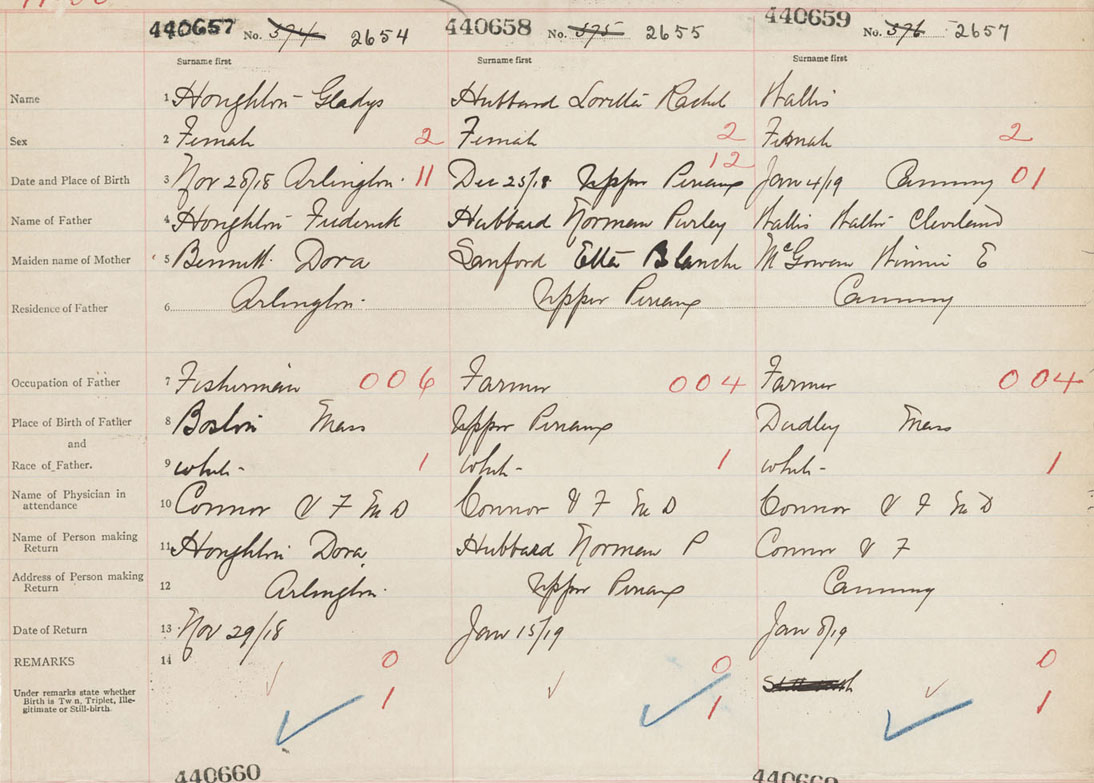 440657 No. 374 2654 440658 No. 375 2655 440659 No. 376 2657
Surname first Surname first Surname first
Name 1 Houghton Gladys Hubbard Loretta Rachel Wallis
Sex 2 Female 2 Female 2 Female 2
12
Date and Place of Birth 3 Nov 28/18 Arlington 11 Dec 25/18 Upper Pereaux Jan 4/19 Canning 01
Name of Father 4 Houghton Frederick Hubbard Norman Purley Wallis Walter Cleveland
Maiden name of Mother 5 Bennett Dora Sanford Etta Blanche McGowan Winnie E
Residence of Father 6 Arlington Upper Pereaux Canning
Occupation of Father 7 Fisherman 006 Farmer 004 Farmer 004
Place of Birth of Father 8 Boston Mass Upper Pereaux Dudley Mass
and
Race of Father. 9 White 1 White 1 White 1
Name of Physician in attendance 10 Connor V F M D Connor V F M D Connor V F M D
Name of Person making Return 11 Houghton Dora Hubbard Norman P Connor V F
Address of Person making Return 12 Arlington Upper Pereaux Canning
Date of Return 13 Nov 29/18 Jan 15/19 Jan 8/19
REMARKS 14 0 0 0
Under remarks state whether Birth is Twin, Triplet, Ille-
gitimate or Still-birth. 1 1 1
440660